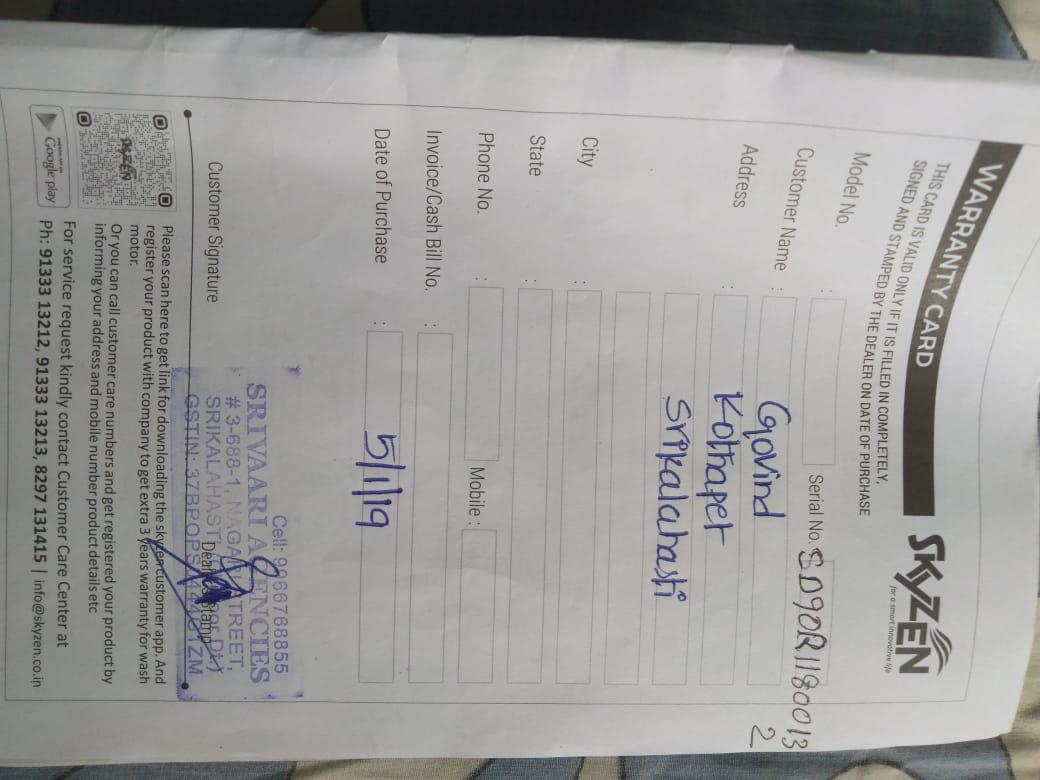 WARRANTY CARD
SKYZEN
for a smart innovative life
THIS CARD IS VALID ONLY IF IT IS FILLED IN COMPLETELY,
SIGNED AND STAMPED BY THE DEALER ON DATE OF PURCHASE
Model No. : Serial No. SD90R1180013
2
Customer Name : Govind
Address : Kothapet
Srikalahasti
City :
State :
Phone No. : Mobile :
Invoice/Cash Bill No. :
Date of Purchase : 5/1/19
Cell: 9966768855
SRIVAARI AGENCIES
# 3-688-1, NAGARI STREET,
SRIKALAHASTI
GSTIN: 37BPOPS
Customer Signature
Dealer Stamp
SKYZEN
Please scan here to get link for downloading the skyzen customer app. And
register your product with company to get extra 3 years warranty for wash
motor.
Or you can call customer care numbers and get registered your product by
informing your address and mobile number product details etc
Google play
For service request kindly contact Customer Care Center at
Ph: 91333 13212, 91333 13213, 8297 131415 | info@skyzen.co.in